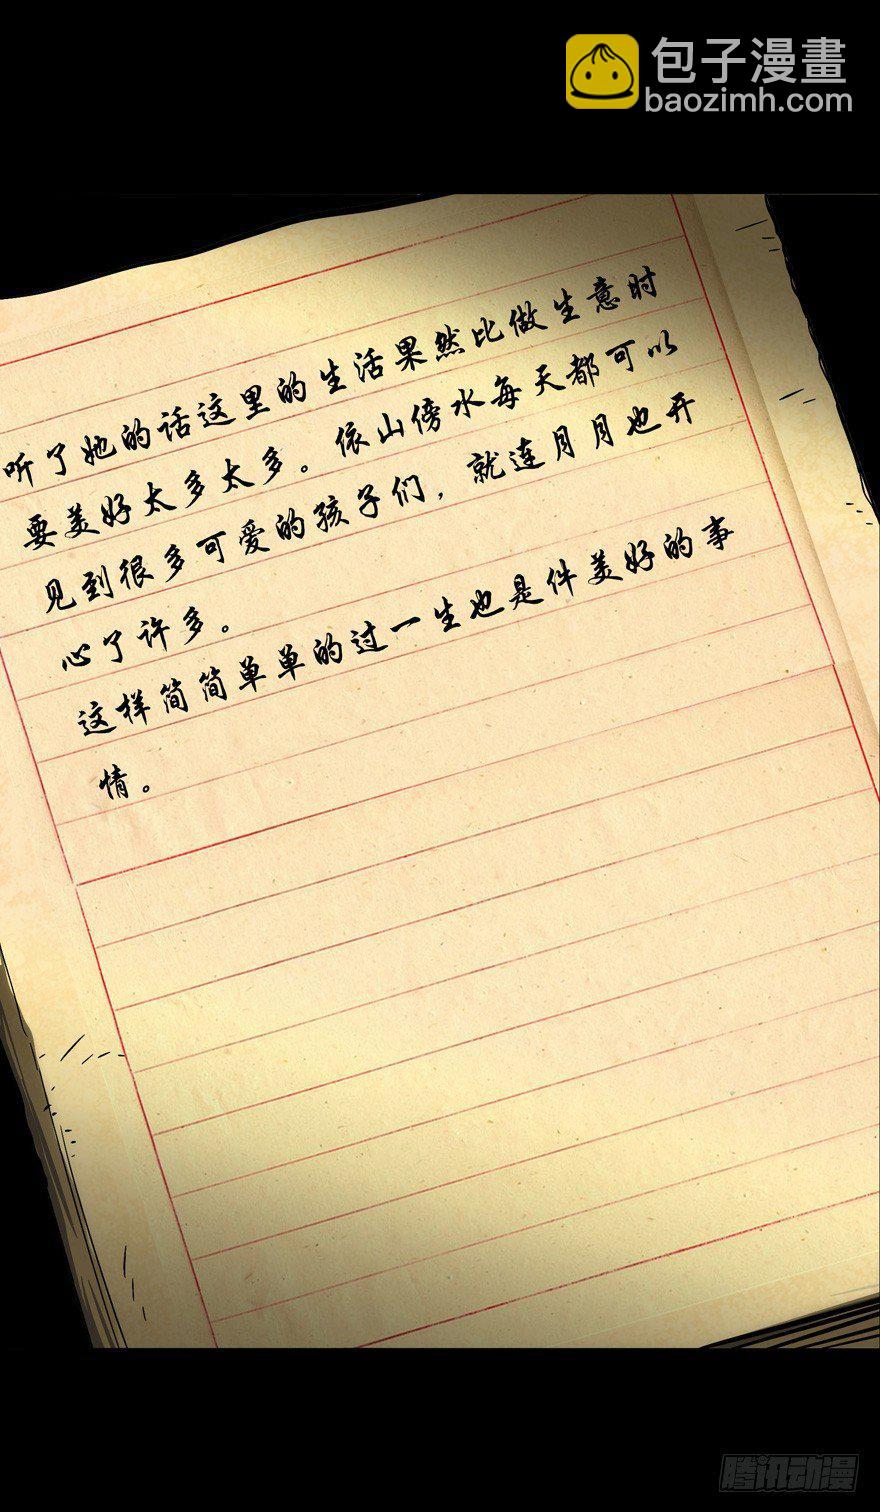 包子漫畫
baozimh.com
听了她的话这里的生活果然比做生意时
要美好太多太多。依山傍水每天都可以
见到很多可爱的孩子们，就连月月也开
心了许多。
这样简简单单的过一生也是件美好的事
情。
腾讯动漫